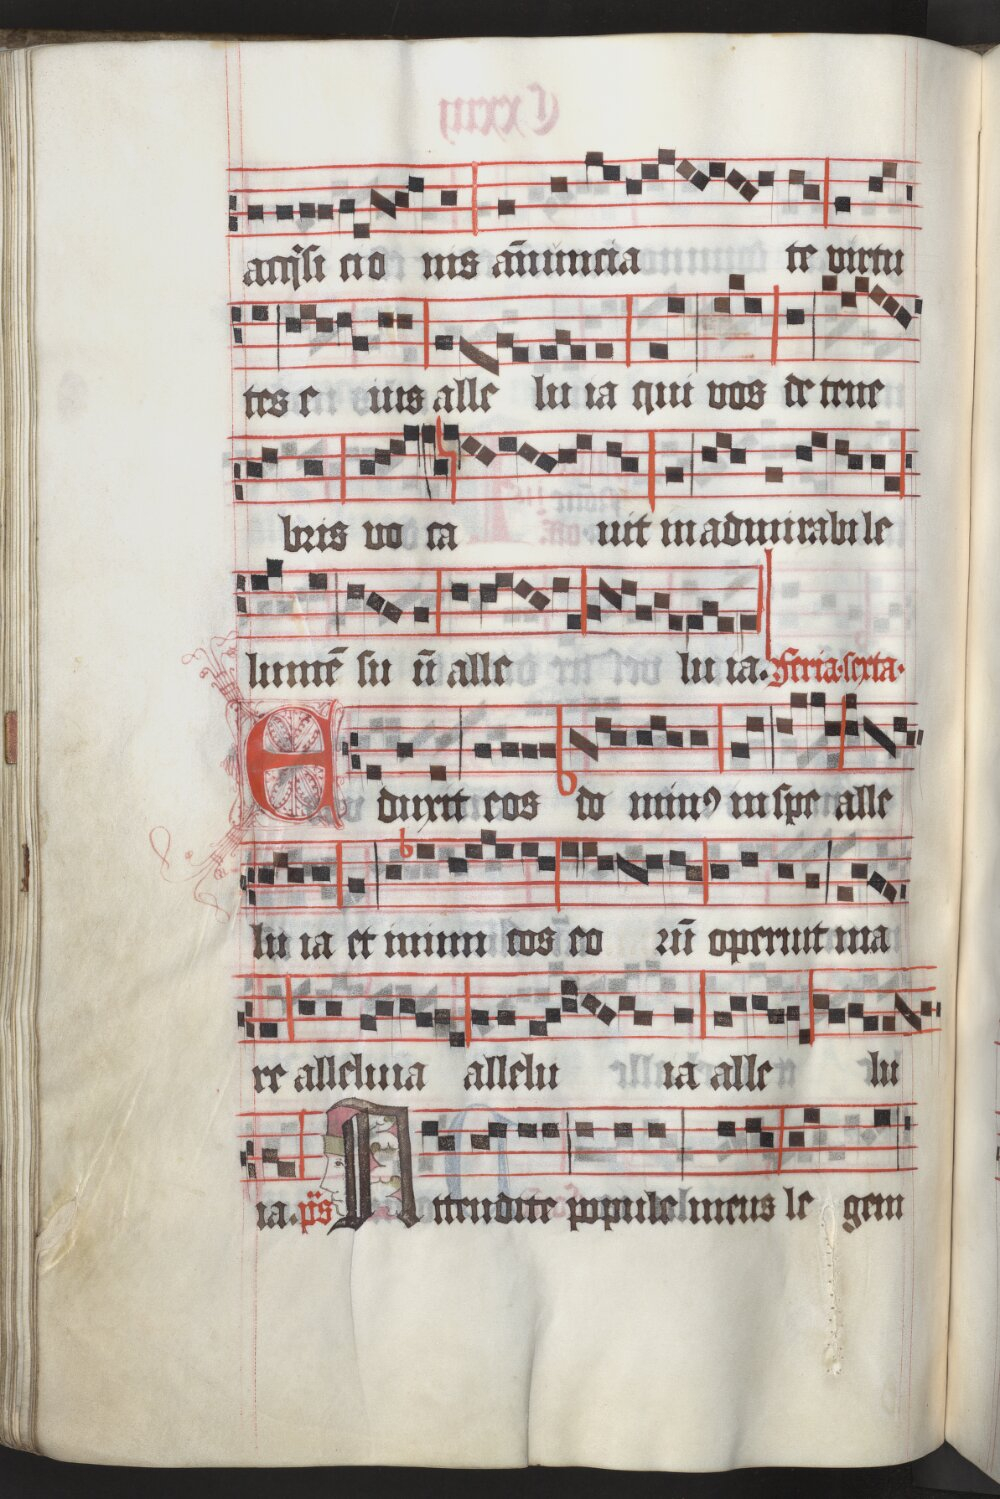 acq̃si cio nis añuncia te virtu
tes e ius alle lu ia qui vos de tene
bris vo ca uit in admirabile
lumē su ũ alle lu ia. Feria sexta.
Eduxit eos do minꝰ in spe alle
lu ia et inimi cos eo rũ operuit ma
re alleluia allelu ia alle lu
ia. p̃s Attendite popule meus le gem